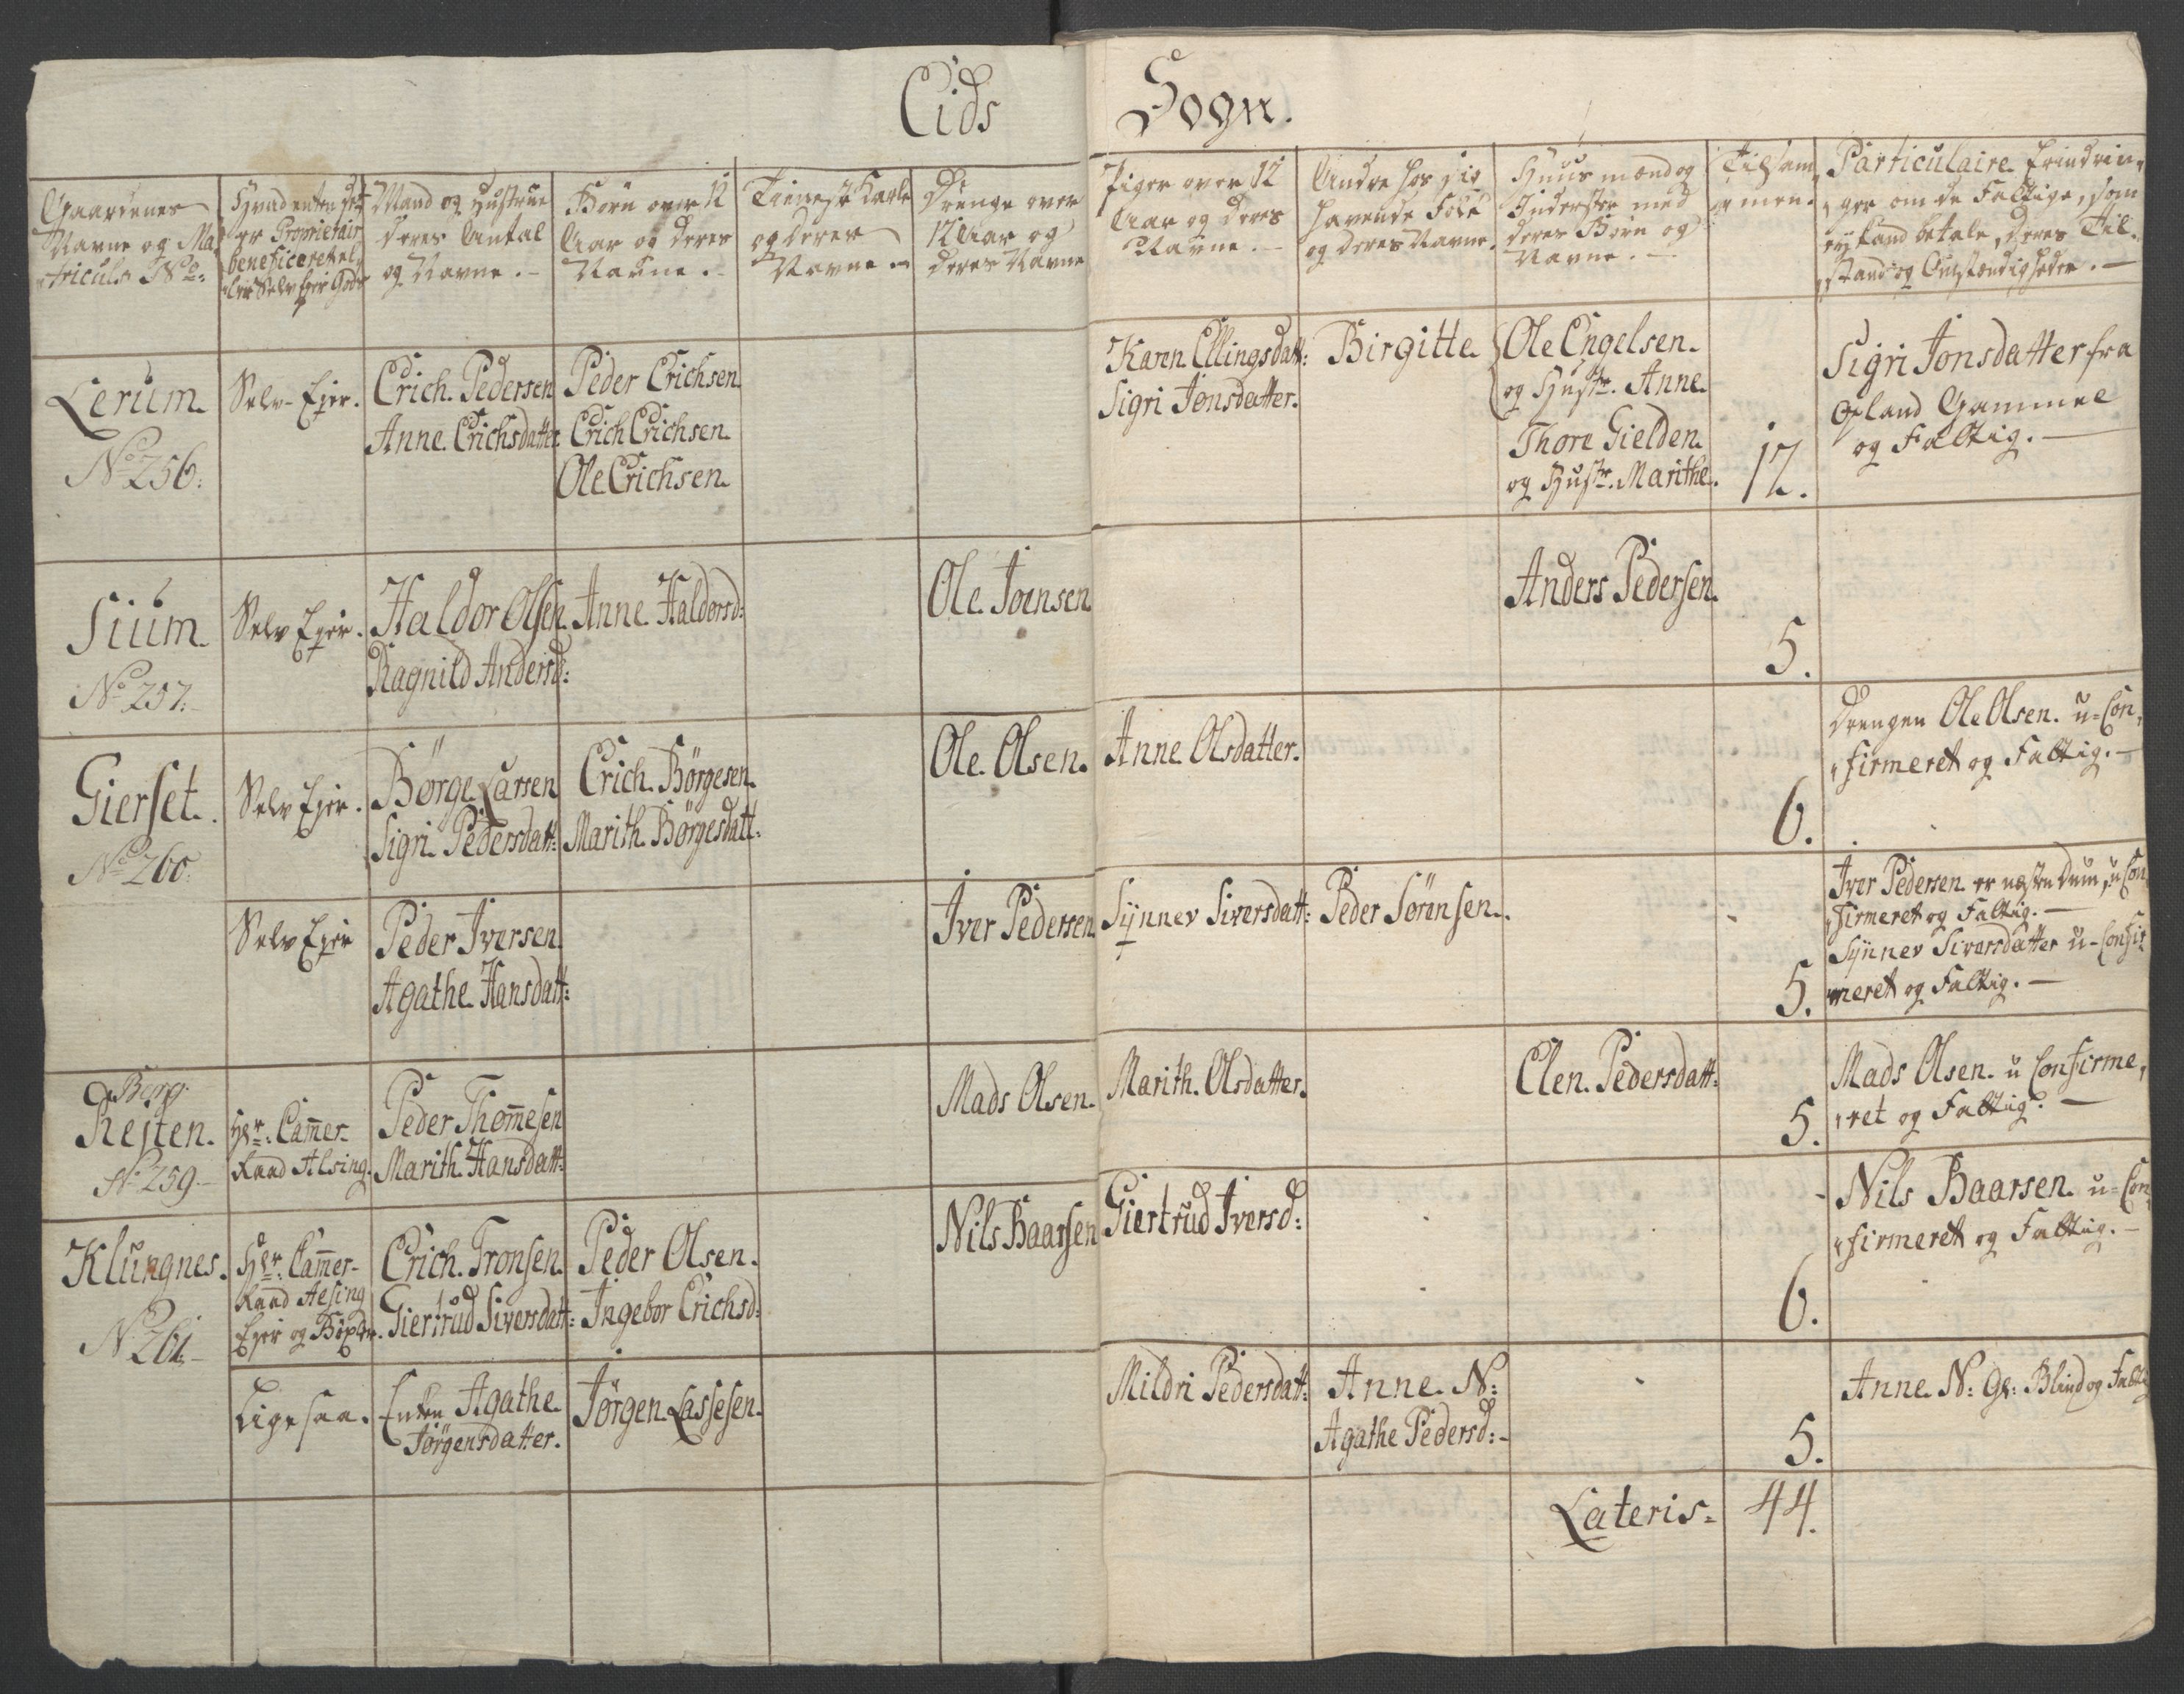 Eids Sogn.
Gaardenes
Navne og Ma
tricul. No:
Hvad enten det
er Proprietair
beneficeret el,
ler Selv Ejer Gods
Mand og Hustrue
deres Antal
og Navne.
Børn over 12
Aar og deres
Navne.
Tieneste Karle
og deres
Navne
Drenge over
12 Aar og
deres Navne
Piger over 12
Aar og deres
Navne.
Andre hos sig
havende Folk
og deres Navne.
Huusmænd og
Inderster med
deres Børn og
Navne.
Tilsam
men.
Particulaire Erindrin,
ger om de Fattige, som
ej kand betale, deres Til,
stand og Omstændigheder.
Lerum.
No 256.
Selv-Ejer.
Erich Pedersen
Anne Erichsdatter
Peder Erichsen
Erich Erichsen.
Ole Erichsen.
Karen Ellingsdatt:
Sigri Jonsdatter.
Birgitte
Ole Engelsen.
og Hustr. Anne.
Thore Gielden.
og Hustr. Marithe.
12.
Sigri Jonsdatter fra
Gammel
og Fattig.
Sium
No 257.
Selv Ejer.
Haldor Olsen
Ragnild Andersd:
Anne Haldorsd:
Ole Joensen
Anders Pedersen.
5.
Gierset.
No 260.
Selv Ejer.
Børge Larsen
Sigri Pedersdatt:
Erich Børgesen.
Marith Børgesdatt:
Ole Olsen.
Anne Olsdatter.
6.
Drengen Ole Olsen. u-Con,
firmeret og Fattig.
Selv Ejer
Peder Iversen
Agathe Hansdatt:
Iver Pedersen
Synnev Siversdatt:
Peder Sørensen.
5.
Iver Pedersen er næsten Dum, u Con,
firmeret og Fattig.
Synnev Siversdatter u-Confir
meret og Fattig.
Berg
Rejten.
No 259
Hr: Cammer-
Raad Alsing.
Peder Thommesen
Marith Hansdatt:
Mads Olsen.
Marith Olsdatter.
Elen Pedersdatt:
5.
Mads Olsen. u Confirme,
ret og Fattig.
Klungnes.
No 261
Hr: Cammer-
Raad Alsing
Ejer og
Erich Tronsen.
Giertrud Siversdatt:
Peder Olsen.
Ingebor Erichsd:
Nils Baarsen
Giertrud Iversd:
6.
Nils Baarsen u-Con
firmeret og Fattig.
Ligesaa.
Enken Agathe
Jørgensdatter.
Jørgen Lassesen.
Mildri Pedersdatt:
Anne N:
Agathe Pedersd:
5.
Anne N: Gl: Blind og Fattig
Lateris= 44.